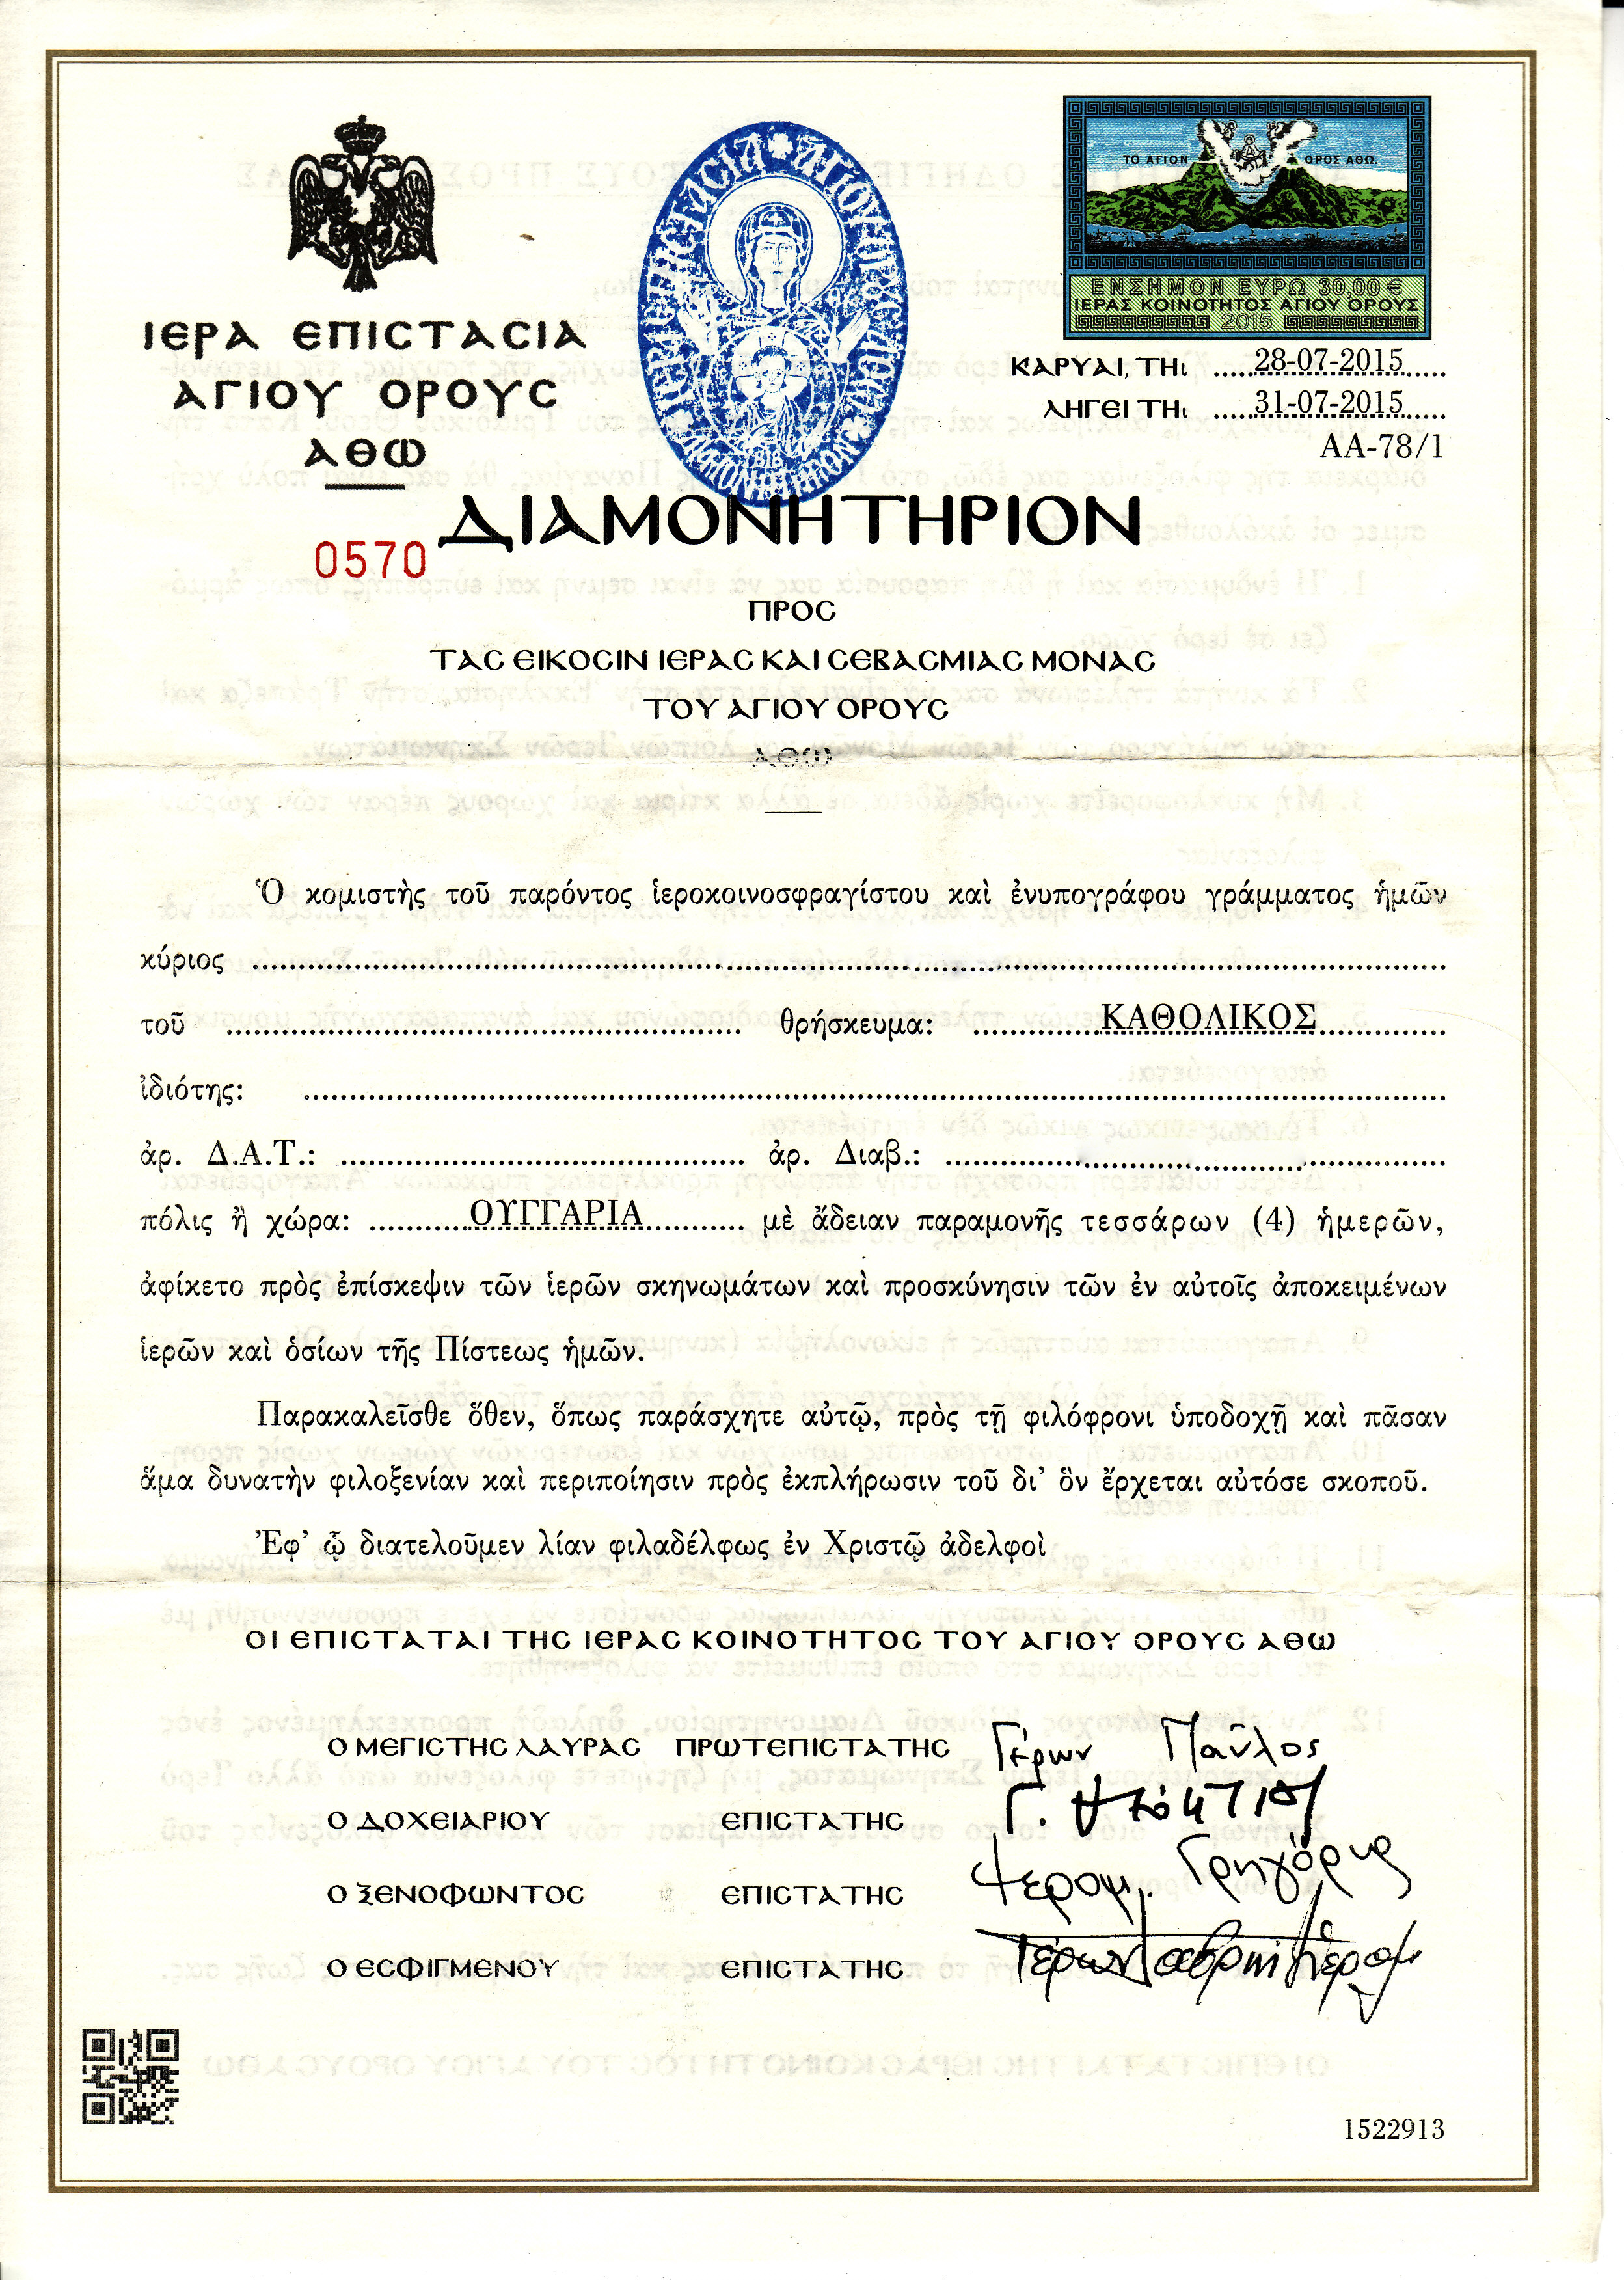 ΙΕΡΑ ΕΠΙCΤΑCΙΑ
ΑΓΙΟΥ ΟΡΟΥC
ΑΘΩ
ΙΕΡΑ ΕΠΙCΤΑCΙΑ ΑΓΙΟΥ ΟΡΟΥC ΑΘΩ
ΔΙΑΜΟΝΗΤΗΡΙΟΝ
ΤΟ ΑΓΙΟΝ ΟΡΟΣ ΑΘΩ.
ΕΝΣΗΜΟΝ ΕΥΡΩ 30,00 €
ΙΕΡΑΣ ΚΟΙΝΟΤΗΤΟΣ ΑΓΙΟΥ ΟΡΟΥΣ
2015
ΚΑΡΥΑΙ, ΤΗι 28-07-2015
ΛΗΓΕΙ ΤΗι 31-07-2015
ΑΑ-78/1
ΔΙΑΜΟΝΗΤΗΡΙΟΝ
0570
ΠΡΟC
ΤΑC ΕΙΚΟCΙΝ ΙΕΡΑC ΚΑΙ CΕΒΑCΜΙΑC ΜΟΝΑC
ΤΟΥ ΑΓΙΟΥ ΟΡΟΥC
ΑΘΩ
Ὁ κομιστὴς τοῦ παρόντος ἱεροκοινοσφραγίστου καὶ ἐνυπογράφου γράμματος ἡμῶν
κύριος
τοῦ θρήσκευμα: ΚΑΘΟΛΙΚΟΣ
ἰδιότης:
ἀρ. Δ.Α.Τ.: ἀρ. Διαβ.:
πόλις ἢ χώρα: ΟΥΓΓΑΡΙΑ μὲ ἄδειαν παραμονῆς τεσσάρων (4) ἡμερῶν,
ἀφίκετο πρὸς ἐπίσκεψιν τῶν ἱερῶν σκηνωμάτων καὶ προσκύνησιν τῶν ἐν αὐτοῖς ἀποκειμένων
ἱερῶν καὶ ὁσίων τῆς Πίστεως ἡμῶν.
Παρακαλεῖσθε ὅθεν, ὅπως παράσχητε αὐτῷ, πρὸς τῇ φιλόφρονι ὑποδοχῇ καὶ πᾶσαν
ἅμα δυνατὴν φιλοξενίαν καὶ περιποίησιν πρὸς ἐκπλήρωσιν τοῦ δι' ὃν ἔρχεται αὐτόσε σκοποῦ.
Ἐφ' ᾧ διατελοῦμεν λίαν φιλαδέλφως ἐν Χριστῷ ἀδελφοὶ
ΟΙ ΕΠΙCΤΑΤΑΙ ΤΗC ΙΕΡΑC ΚΟΙΝΟΤΗΤΟC ΤΟΥ ΑΓΙΟΥ ΟΡΟΥC ΑΘΩ
Ο ΜΕΓΙCΤΗC ΛΑΥΡΑC ΠΡΩΤΕΠΙCΤΑΤΗC Γέρων Παῦλος
Ο ΔΟΧΕΙΑΡΙΟΥ ΕΠΙCΤΑΤΗC Γ.
Ο ΞΕΝΟΦΩΝΤΟC ΕΠΙCΤΑΤΗC Ἱερομ. Γρηγόριος
Ο ΕCΦΙΓΜΕΝΟΥ ΕΠΙCΤΑΤΗC Γέρων
1522913